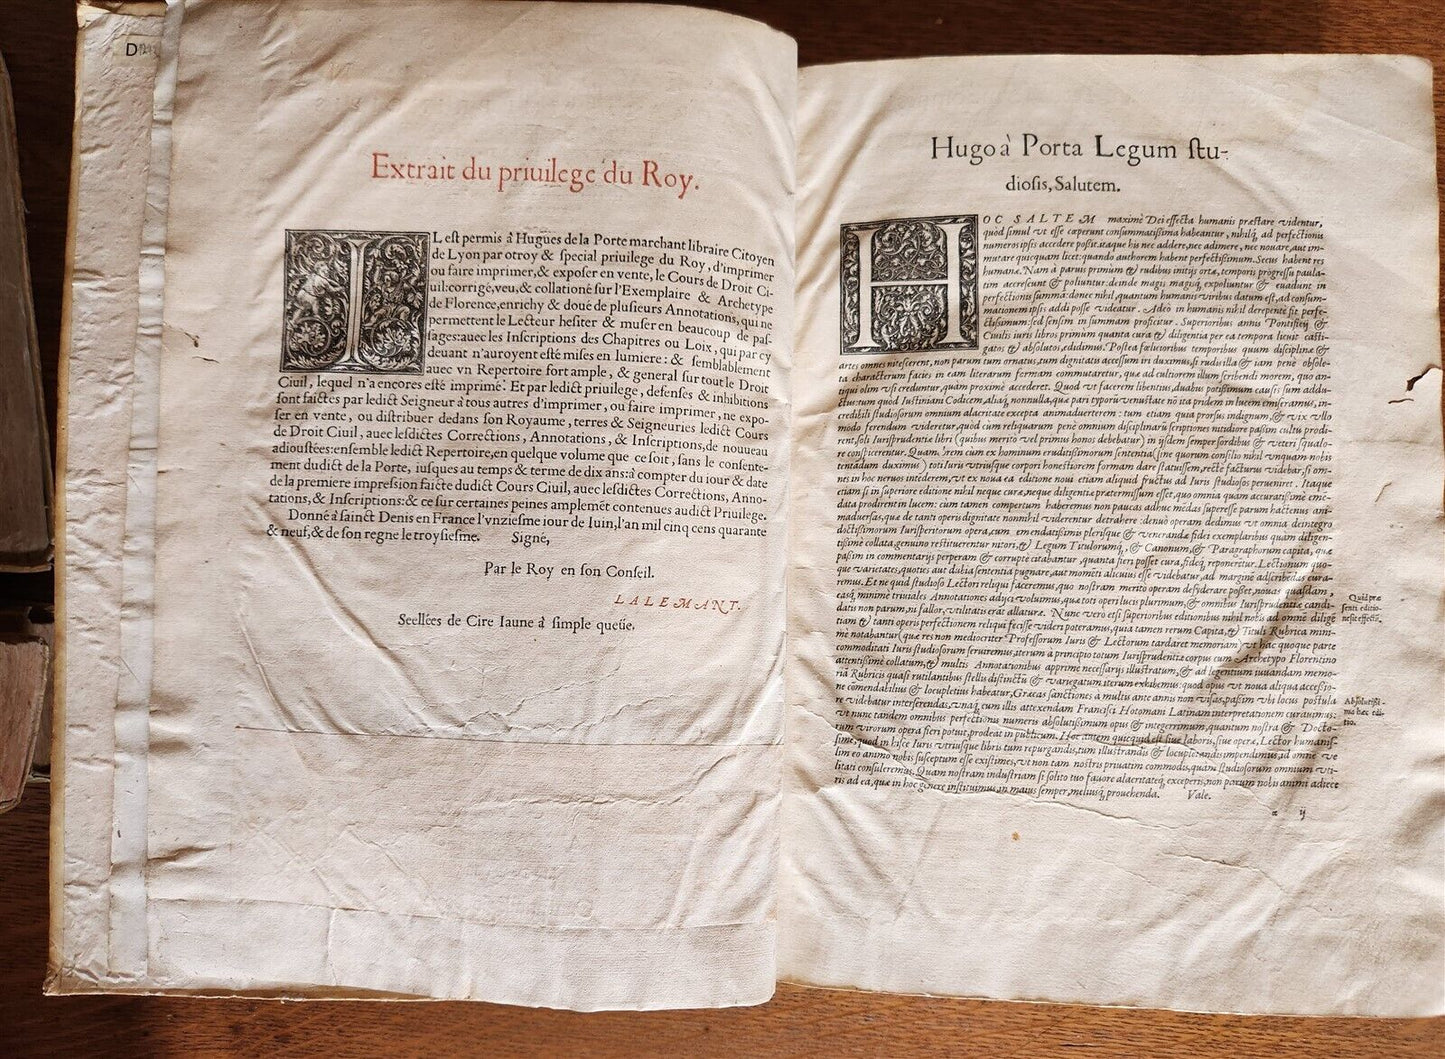 D
Extrait du priuilege du Roy.
IL est permis à Hugues de la Porte marchant libraire Citoyen
de Lyon par otroy & special priuilege du Roy, d'imprimer
ou faire imprimer, & exposer en vente, le Cours de Droit Ci-
uil: corrigé, veu, & collationé sur l'Exemplaire & Archetype
de Florence, enrichy & doué de plusieurs Annotations, qui ne
permettent le Lecteur hesiter & muser en beaucoup de pas-
sages: auec les Inscriptions des Chapitres ou Loix, qui par cy
deuant n'auroyent esté mises en lumiere: & semblablement
auec vn Repertoire fort ample, & general sur tout le Droit
Ciuil, lequel n'a encores esté imprimé. Et par ledict priuilege, defenses & inhibitions
sont faictes par ledict Seigneur à tous autres d'imprimer, ou faire imprimer, ne expo-
ser en vente, ou distribuer dedans son Royaume, terres & Seigneuries ledict Cours
de Droit Ciuil, auec lesdictes Corrections, Annotations, & Inscriptions, de nouueau
adioustées: ensemble ledict Repertoire, en quelque volume que ce soit, sans le consente-
ment dudict de la Porte, iusques au temps & terme de dix ans: à compter du iour & date
de la premiere impression faicte dudict Cours Ciuil, auec lesdictes Corrections, Anno-
tations, & Inscriptions: & ce sur certaines peines amplemēt contenues audict Priuilege.
Donné à sainct Denis en France l'vnziesme iour de Iuin, l'an mil cinq cens quarante
& neuf, & de son regne le troysiesme. Signé,
Par le Roy en son Conseil.
LALEMANT.
Seellées de Cire Iaune à simple queüe.
Hugo à Porta Legum stu-
diosis, Salutem.
HOC SALTEM maximè Dei effecta humanis præstare videntur,
quòd simul vt esse cœperunt consummatissima habeantur, nihilq́; ad perfectionis
numeros ipsis accedere possit. itaque his nec addere, nec adimere, nec nouare, aut im-
mutare quicquam licet: quando authorem habent perfectissimum. Secus habent res
humanæ. Nam à paruis primum & rudibus initijs ortæ, temporis progressu paula-
tim accrescunt & poliuntur: deinde magis magisq́; expoliuntur & euadunt in
perfectionis summa: donec nihil, quantum humanis viribus datum est, ad consum-
mationem ipsis addi posse videatur. Adeò in humanis nihil derepente sit perfe-
ctissimum: sed sensim in summam proficitur. Superioribus annis Pontificij &
Ciuilis iuris libros primum quanta cura & diligentia per ea tempora licuit casti-
gatos & absolutos, edidimus. Postea fœlicioribus temporibus quum disciplinæ &
artes omnes nitescerent, non parum tum ornatus, tum dignitati accessum iri duximus, si rudis illa & iam penè obsole-
ta characterum facies in eam literarum formam commutaretur, quæ ad cultiorem illum scribendi morem, quo an-
tiqui olim vsi creduntur, quàm proximè accederet. Quod vt facerem libentius, duabus potissimum causis sum addu-
ctus: tum quòd Iustiniani Codicem, aliaq́; nonnulla, quæ pari typorū venustate nō ita pridem in lucem emiseramus, in-
credibili studiosorum omnium alacritate excepta animaduerterem: tum etiam quia prorsus indignum, & vix vllo
modo ferendum videretur, quòd cùm reliquarum penè omnium disciplinarū scriptiones nitidiore passim cultu prodi-
rent, soli Iurisprudentiæ libri (quibus meritò vel primus honos debebatur) in ijsdem semper sordibus & veteri squalo-
re consticerentur. Quam rem cum ex hominum eruditissimorum sententia (sine quorum consilio nihil vnquam nobis
tentandum duximus) toti Iuris vtriusque corpori honestiorem formam dare statuissem, rectè facturus videbar, si om-
nes in hoc neruos intenderem, vt ex noua ea editione noui etiam aliquid fructus ad Iuris studiosos perueniret. Itaque
etiam si in superiore editione nihil neque curæ, neque diligentiæ prætermissum esset, quo omnia quàm accuratissimè emē-
data prodirent in lucem: cùm tamen compertum haberemus non paucas adhuc mēdas superesse parum hactenus ani-
maduersas, quæ de tanti operis dignitate nonnihil viderentur detrahere: denuò operam dedimus vt omnia deintegro
doctissimorum Iurisperitorum opera, cum emendatissimis plerisque & venerandæ fidei exemplaribus quàm diligen-
tissimè collata, genuino restituerentur nitori, & Legum Titulorumq́;, & Canonum, & Paragraphorum capita, quæ
passim in commentarijs perperam & corruptè citabantur, quanta fieri posset cura, fideq́; reponeretur. Lectionum quo-
que varietates, quoties aut dubia sententia pugnare, aut momēti alicuius esse videbatur, ad marginē adscribēdas cura-
remus. Et ne quid studioso Lectori reliqui faceremus, quo nostram meritò operam desyderare posset, nouas quasdam,
easq́; minimè triuiales Annotationes adijci voluimus, quæ toti operi lucis plurimum, & omnibus Iurisprudentiæ candi-
datis non parum, ni fallor, vtilitatis erāt allaturæ. Nunc verò etsi superioribus editionibus nihil nobis ad omnē diligē
tiam & tanti operis perfectionem reliqui fecisse videri poteramus, quia tamen rerum Capita, & Tituli Rubrica mini-
mè notabantur (quæ res non mediocriter Professorum Iuris & Lectorum tardaret memoriam) vt hac quoque parte
commoditati Iuris studiosorum seruiremus, iterum à principio totum Iurisprudentiæ corpus cum Archetypo Florentino
attentissimè collatum, & multis Annotationibus apprimè necessarijs illustratum, & ad legentium iuuandam memo-
riā Rubricis quasi rutilantibus stellis distinctū & variegatum iterum exhibemus: quod opus vt noua aliqua accessio-
ne comendabilius & locupletius habeatur, Græcas sanctiones à multis ante annis non visas, passim vbi locus postula
re videbatur interserendas, vnaq́; cum illis attexendam Francisci Hotomani Latinam interpretationem curauimus:
vt nunc tandem omnibus perfectionis numeris absolutissimum opus & integerrimum, quantum nostra & Docto-
rum virorum opera fieri potuit, prodeat in publicum. Hoc autem quicquid est siue laboris, siue operæ, Lector humanis-
sime, quod in hisce Iuris vtriusque libris tum repurgandis, tum illustrandis & locupletandis impendimus, ad omnē ve
lim eo animo nobis susceptum esse existimes, vt non tam nostris priuatim commodis, quàm studiosorum omnium vti-
litati consuleremus. Quam nostram industriam si solito tuo fauore alacritateq́; exceperis, non parum nobis animi adiece
ris ad ea, quæ in hoc genere instituimus in maius semper, meliusq́; prouehenda. Vale.
Quid præ
senti editio-
ne sit effectū.
Absolutiss-
ma hæc edi-
tio.
a ij